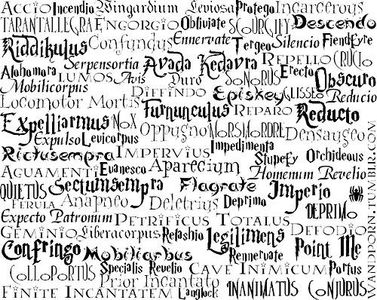 Accio Incendio Wingardium Leviosa Protego Incarcerous
Tarantallegra Engorgio Obliviate Scourgify Descendo
Riddikulus Confundus Ennervate Tergeo Silencio FiendFyre
Alohomora Serpensortia Avada Kedavra Repello Crucio
Mobilicorpus Lumos Avis Duro Sonorus Erecto Obscuro
Locomotor Mortis Diffindo Episkey Glisseo Reducio
Expelliarmus Nox Furnunculus Reparo Reducto
Expulso Levicorpus Oppugno Morsmordre Densaugeo
Rictusempra Impervius Impedimenta Stupefy Orchideous
Aguamenti Evanesco Aparecium Homenum Revelio
Quietus Sectumsempra Flagrate Imperio
Ferula Anapneo Deletrius Deprimo Deprimo
Expecto Patronum Petrificus Totalus Defodio
Geminio Liberacorpus Refashio Legilimens Point Me
Confringo Mobiliarbus Rennervate
Colloportus Specialis Revelio Cave Inimicum Portus
Finite Incantatem Prior Incantato Langlock Inanimatus Conjurus
WANDPORN.TUMBLR.COM